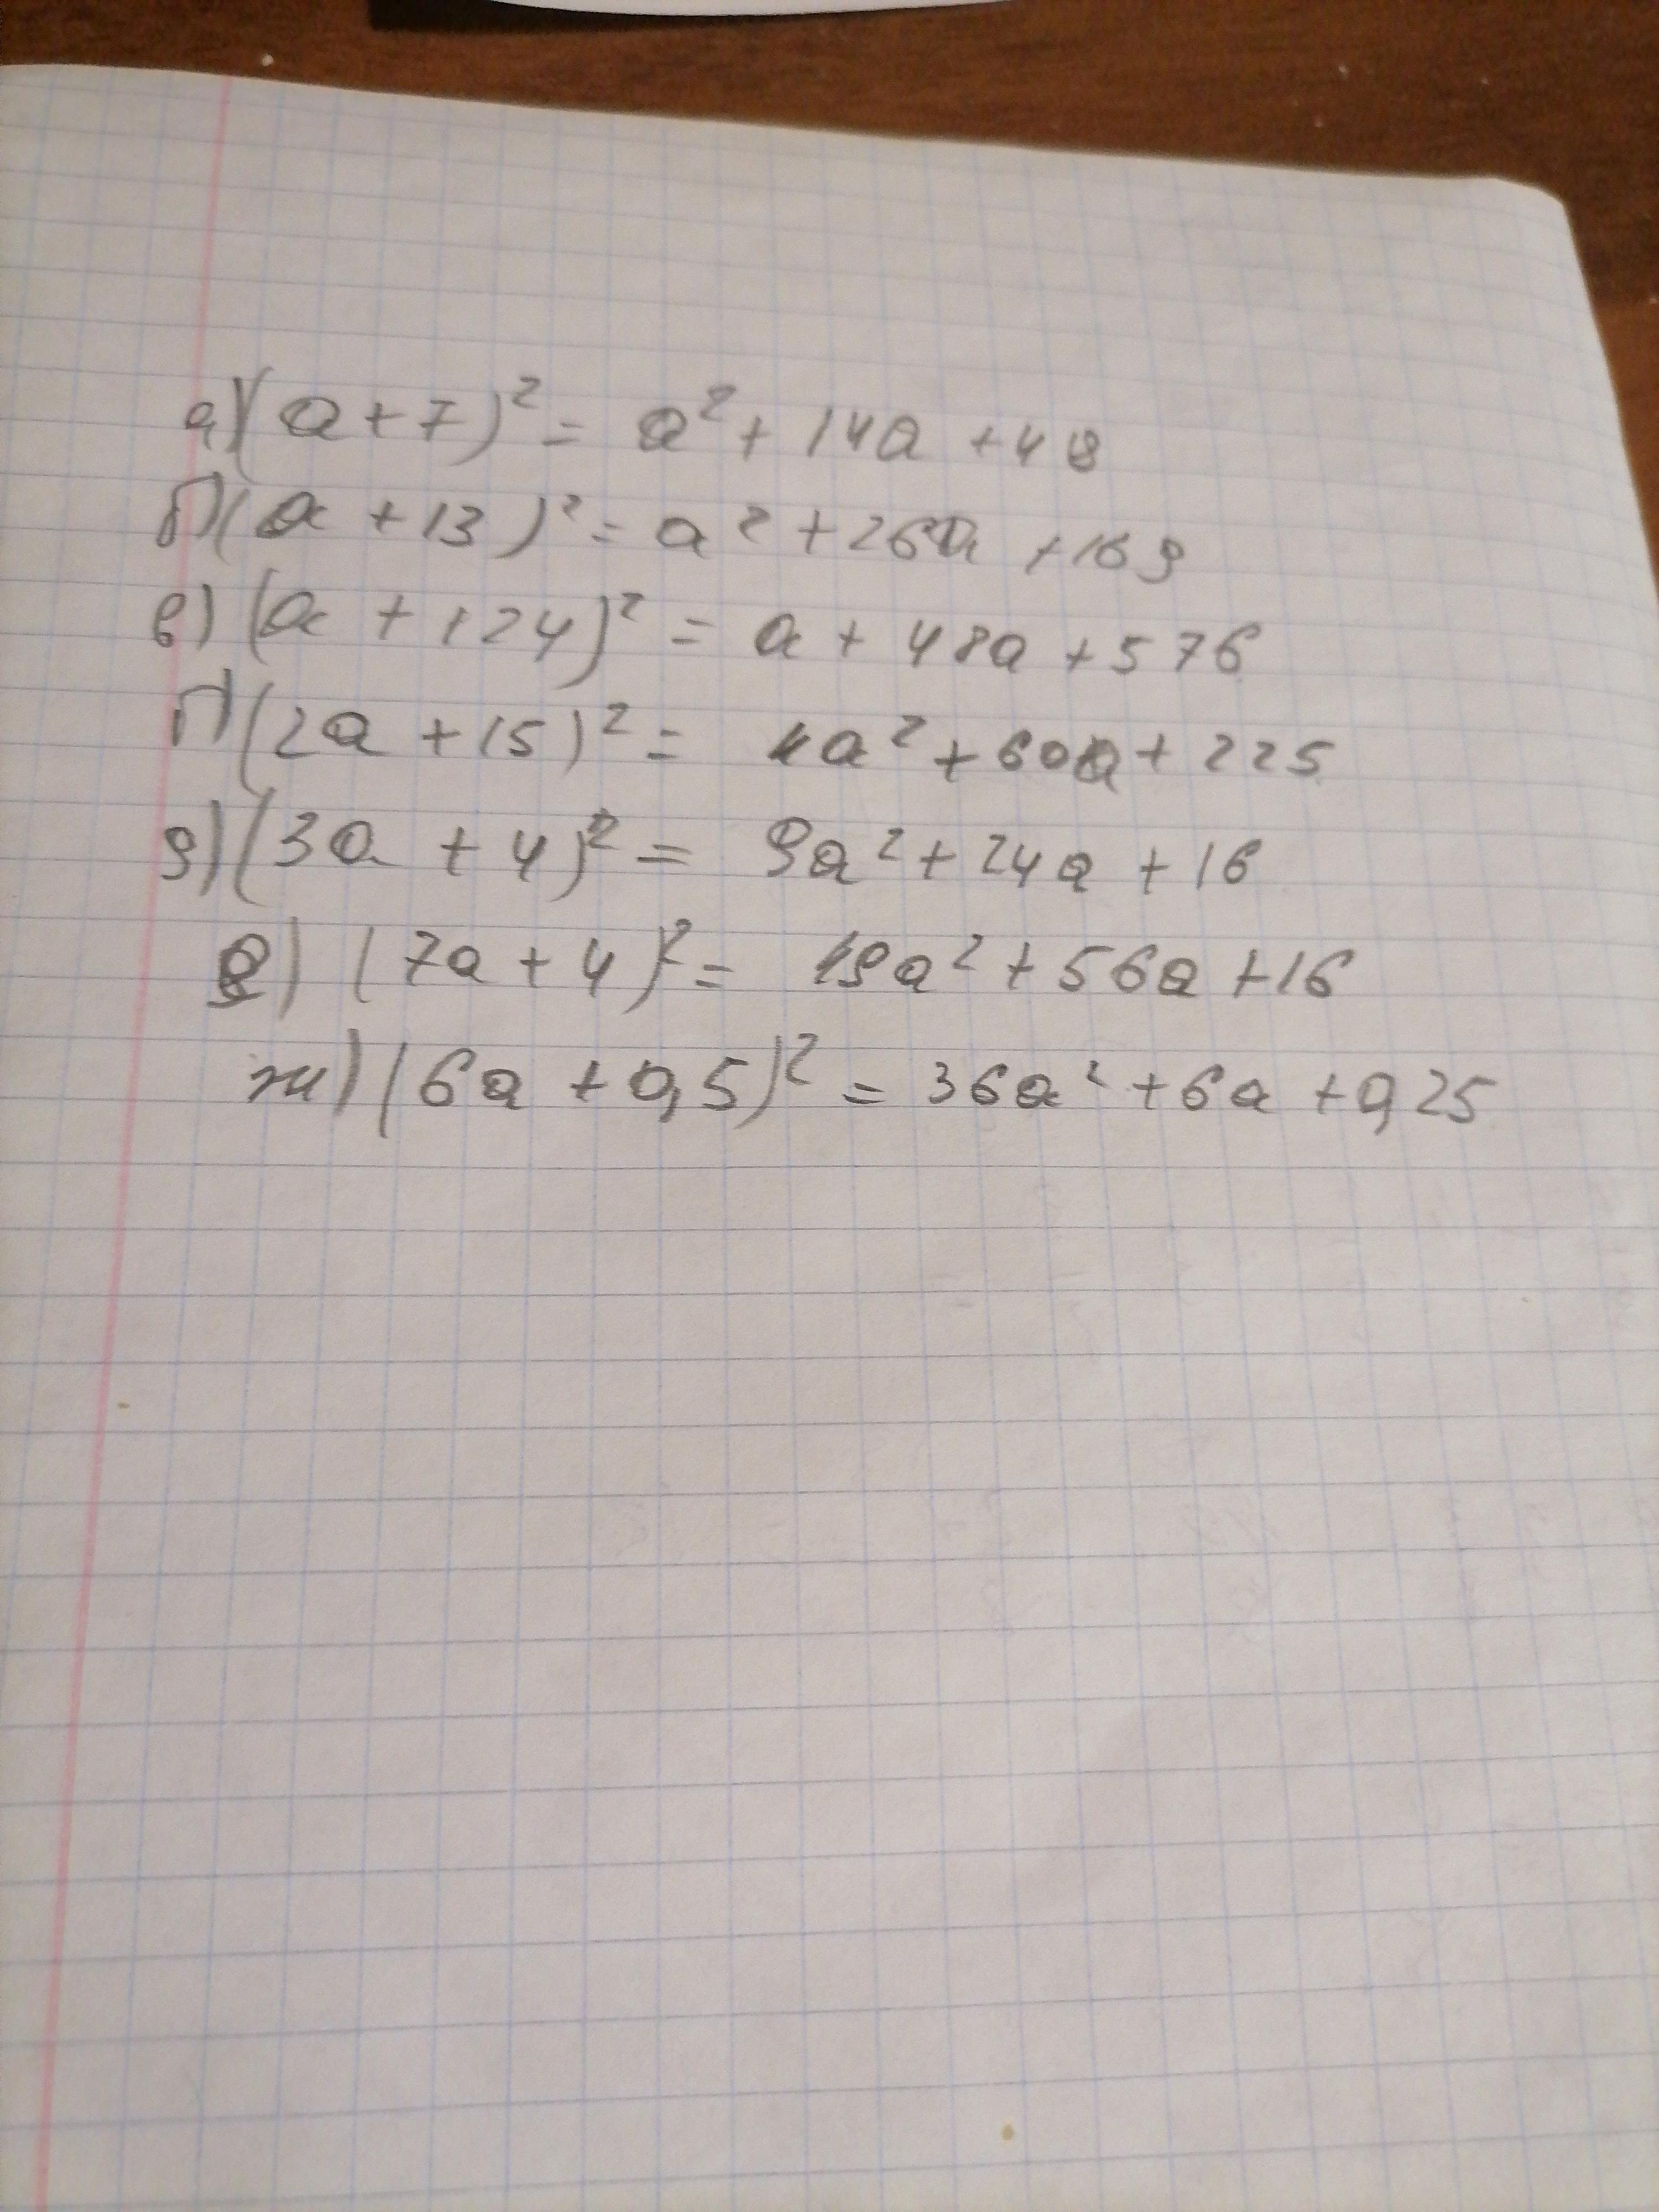 а) (a+7)² = a² + 14a + 48
б) (a + 13)² = a² + 26a + 169
в) (a + 124)² = a + 48a + 576
г) (2a + 15)² = 4a² + 60a + 225
д) (3a + 4)² = 9a² + 24a + 16
е) (7a + 4)² = 49a² + 56a + 16
ж) (6a + 0,5)² = 36a² + 6a + 0,25